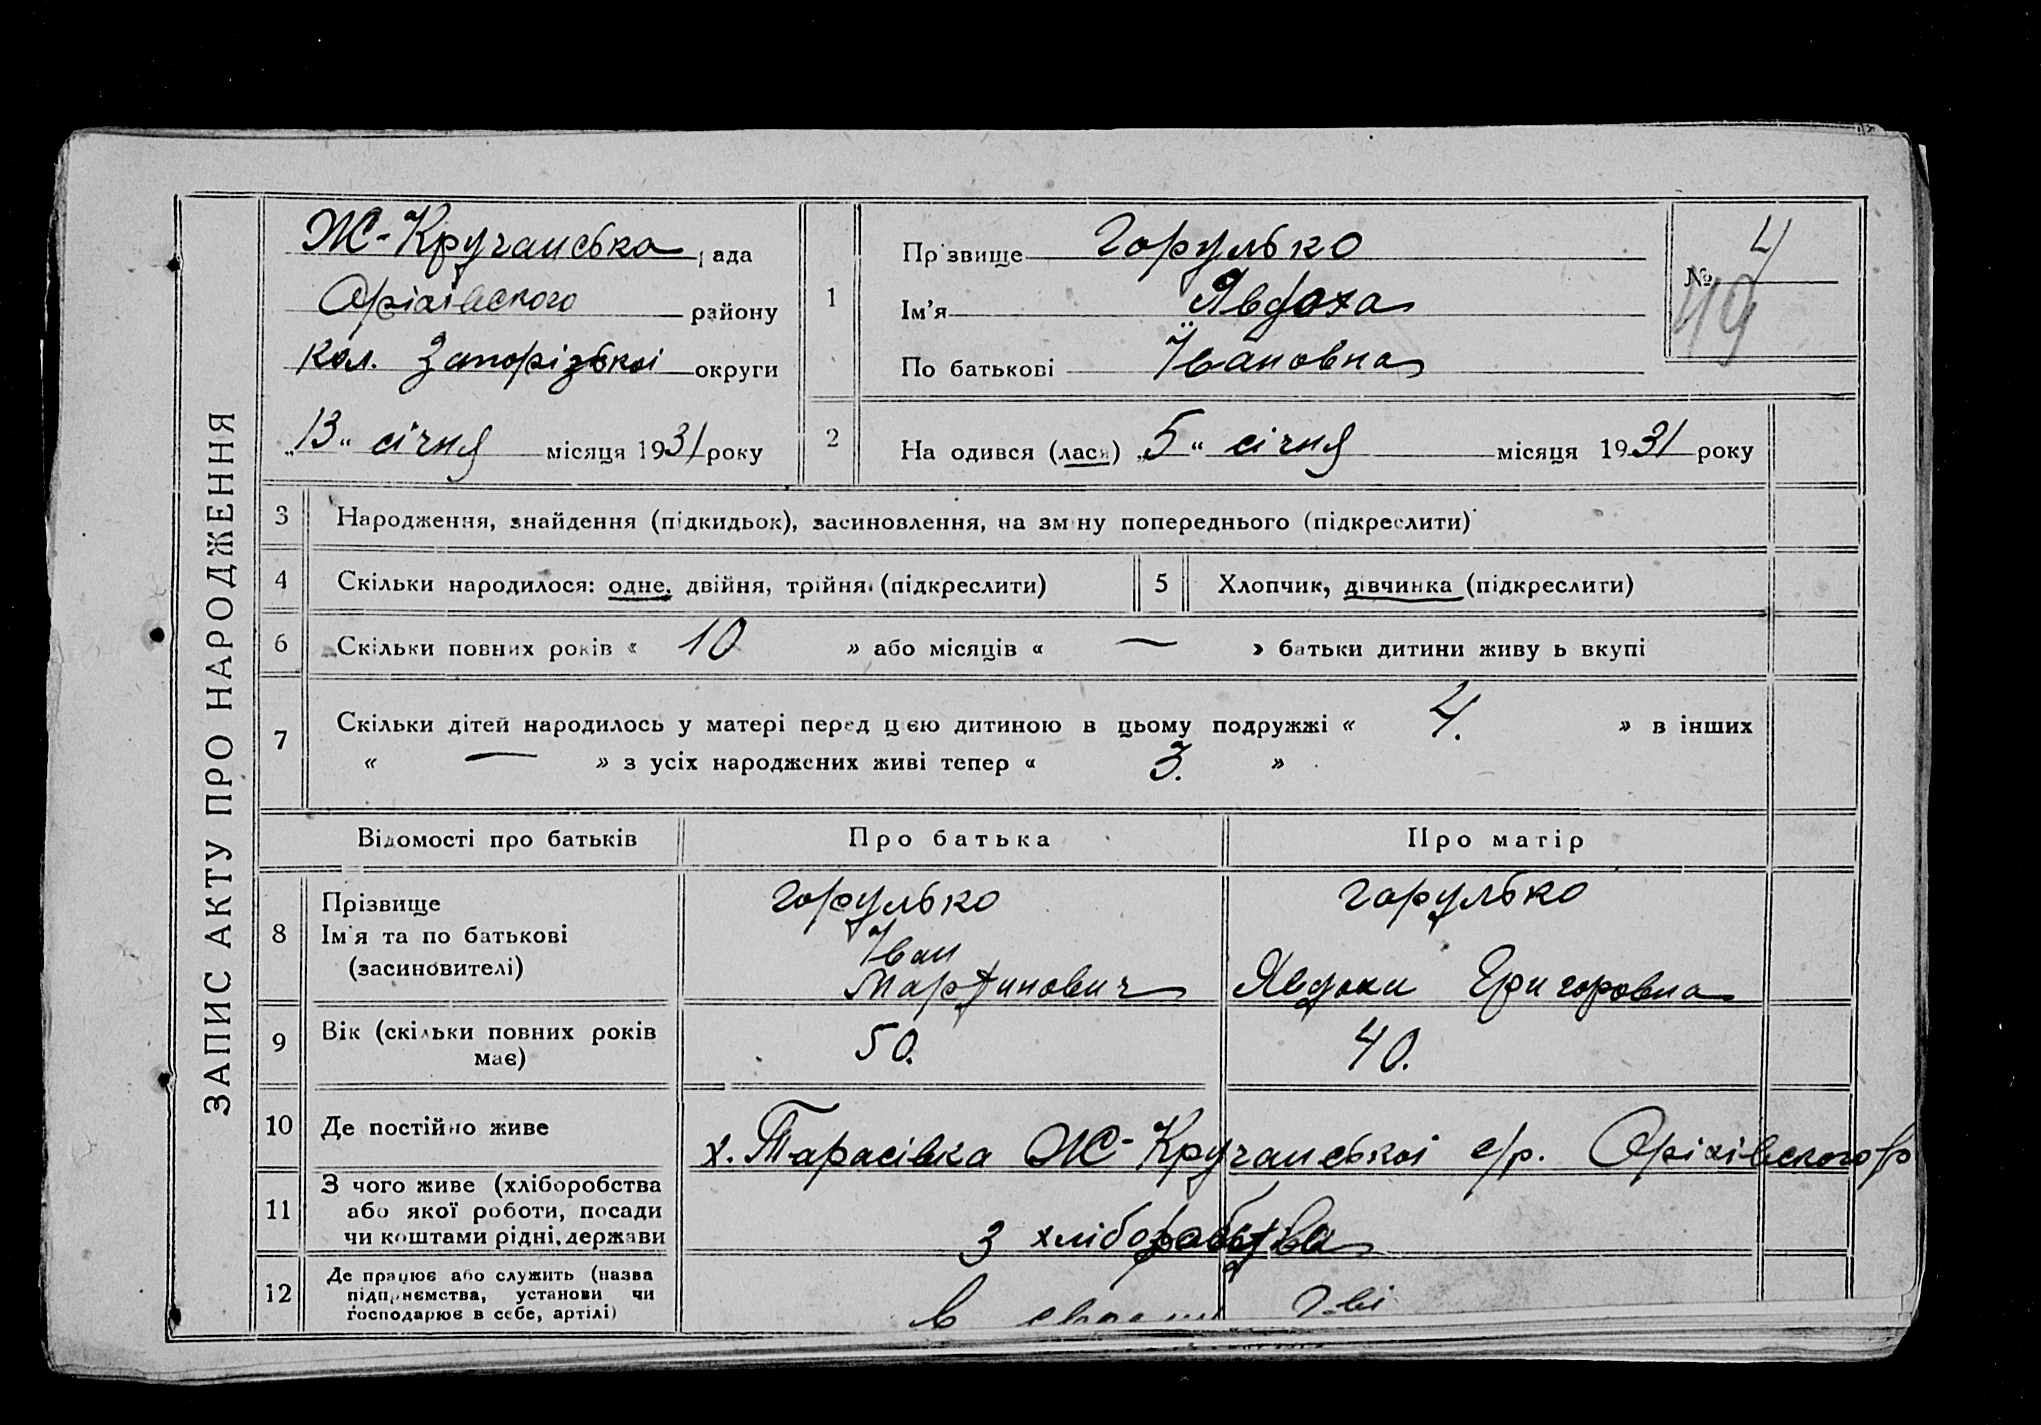 ЗАПИС АКТУ ПРО НАРОДЖЕННЯ
Ж-Кручанська рада
Оріхівського району
кол. Запорізької округи
„13“ січня місяця 1931 року
1
Прізвище Горулько
Ім'я Явдоха
По батькові Івановна
№ 4
49
2
На одився (лася) „5“ січня місяця 1931 року
3 Народження, знайдення (підкидьок), засиновлення, на зміну попереднього (підкреслити)
4 Скільки народилося: одне, двійня, трійня (підкреслити) 5 Хлопчик, дівчинка (підкреслити)
6 Скільки повних років « 10 » або місяців « — » батьки дитини живу ь вкупі
7 Скільки дітей народилось у матері перед цією дитиною в цьому подружжі « 4. » в інших
« — » з усіх народжених живі тепер « 3. »
Відомості про батьків Про батька Про матір
8 Прізвище
Ім'я та по батькові
(засиновителі)
Горулько
Іван
Мартинович
Горулько
Явдоки Григоровна
9 Вік (скільки повних років
має)
50. 40.
10 Де постійно живе х. Тарасівка Ж-Кручанської с/р. Оріхівського р
11 З чого живе (хліборобства
або якої роботи, посади
чи коштами рідні, держави
з хліборобства
12 Де працює або служить (назва
підприємства, установи чи
господарює в себе, артілі)
в